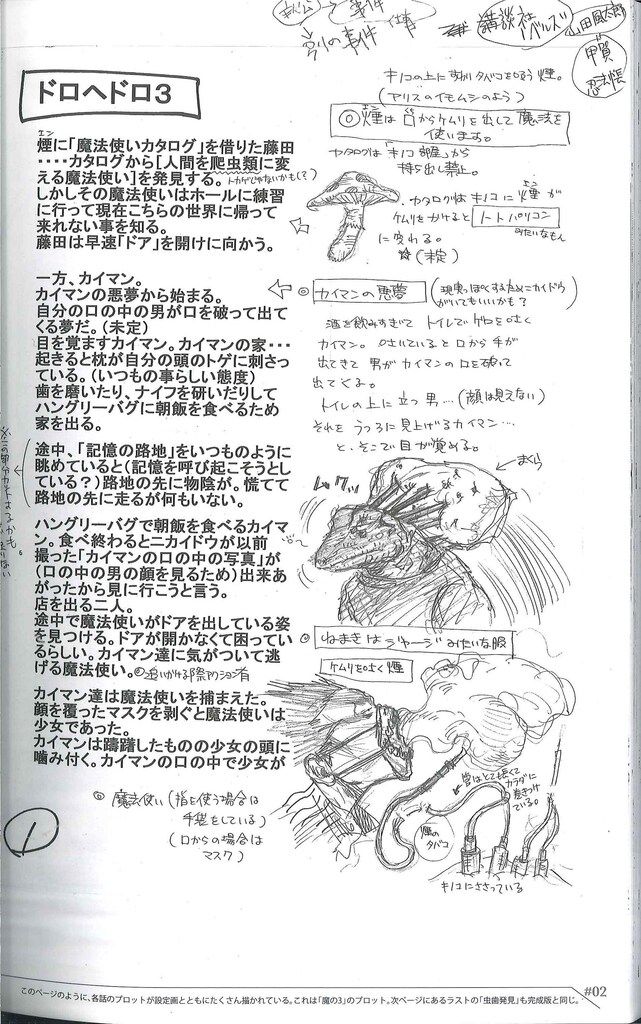 キノコ
事件
仕事
別の事件
講談社
ノベルズ
山田風太郎
甲賀
忍法帳
ドロヘドロ3
エン
煙に「魔法使いカタログ」を借りた藤田
‥‥カタログから[人間を爬虫類に変
える魔法使い]を発見する。トカゲじゃないかも(?)
しかしその魔法使いはホールに練習
に行って現在こちらの世界に帰って
来れない事を知る。
藤田は早速「ドア」を開けに向かう。
一方、カイマン。
カイマンの悪夢から始まる。
自分の口の中の男が口を破って出て
くる夢だ。(未定)
目を覚ますカイマン。カイマンの家‥‥
起きると枕が自分の頭のトゲに刺さっ
ている。(いつもの事らしい態度)
歯を磨いたり、ナイフを研いだりして
ハングリーバグに朝飯を食べるため
家を出る。
途中、「記憶の路地」をいつものように
眺めていると(記憶を呼び起こそうとし
ている?)路地の先に物陰が。慌てて
路地の先に走るが何もいない。
ハングリーバグで朝飯を食べるカイマ
ン。食べ終わるとニカイドウが以前
撮った「カイマンの口の中の写真」が
(口の中の男の顔を見るため)出来あ
がったから見に行こうと言う。
店を出る二人。
途中で魔法使いがドアを出している姿
を見つける。ドアが開かなくて困ってい
るらしい。カイマン達に気がついて逃
げる魔法使い。◎追いかける際アクション有
カイマン達は魔法使いを捕まえた。
顔を覆ったマスクを剥ぐと魔法使いは
少女であった。
カイマンは躊躇したものの少女の頭に
噛み付く。カイマンの口の中で少女が
◎ 魔法使い(指を使う場合は
手袋をしている)
(口からの場合は
マスク)
1
キノコの上に すわり タバコを吸う 煙。
(アリスのイモムシのよう)
エン
◎煙は口からケムリを出して 魔法を
使います。
カタログは「キノコ部屋」から
持ち出し禁止。
エン
・カタログは キノコに 煙が
ケムリをかけると トートパソコン
みたいなもん
に変わる。
☆(未定)
◎ カイマンの悪夢 (現実っぽくするためニカイドウ
がいてもいいかも?)
酒を飲みすぎて トイレでゲロを吐く
カイマン。吐いていると口から手が
出てきて 男がカイマンの口を破って
出てくる。
トイレの上に立つ男…(顔は見えない)
それを うつろに見上げるカイマン…
と、そこで目が覚める。
まくら
◎ ねまきは ジャージみたいな服
ケムリを吐く煙
管はとても長くて
カラダに
巻きつけ
ている。
煙のタバコ
キノコにささっている
#02
このページのように、各話のプロットが設定画とともにたくさん描かれている。これは「魔の3」のプロット。次ページにあるラストの「虫歯発見」も完成版と同じ。